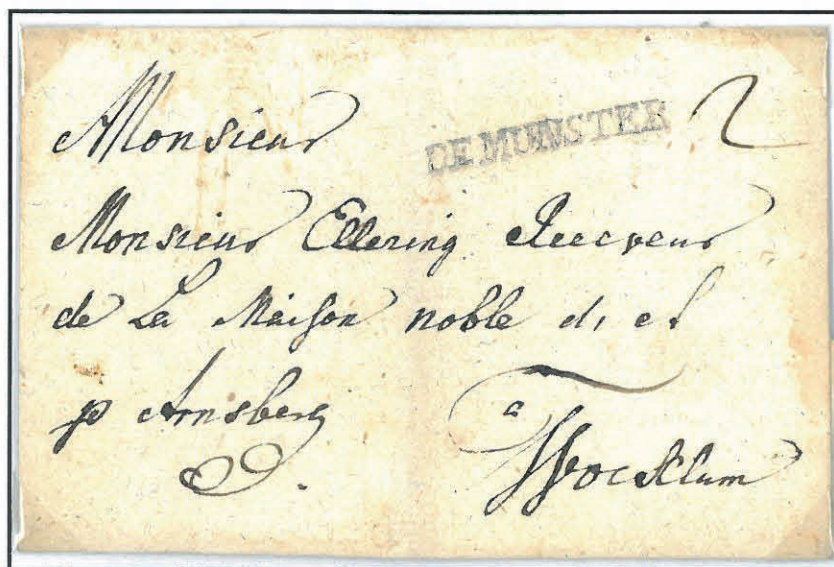 Monsieur
DE MUNSTER
2
Monsieur Ellering Receveur
de La Maison noble d, et
p Arnsberg
a
Wocklum